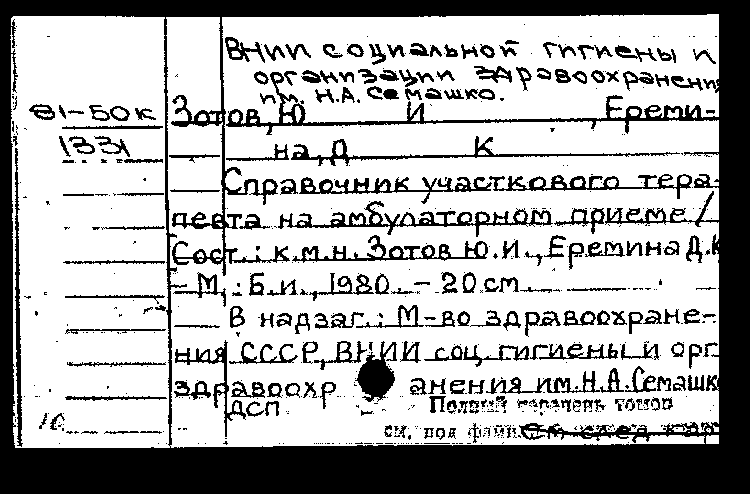 ВНИИ социальной гигиены и
организации здравоохранения
им. Н.А. Семашко.
81-50к Зотов, Ю И , Ереми-
1331 на, Д К
Справочник участкового тера-
певта на амбулаторном приеме /
Сост.: к.м.н. Зотов Ю.И., Еремина Д.К
- М. : Б.и., 1980. - 20 см.
В надзаг.: М-во здравоохране-
ния СССР, ВНИИ соц. гигиены и орг
здравоохр анения им. Н.А. Семашко
ДСП Полный перечень томов
10 см. под фами См. след. кар